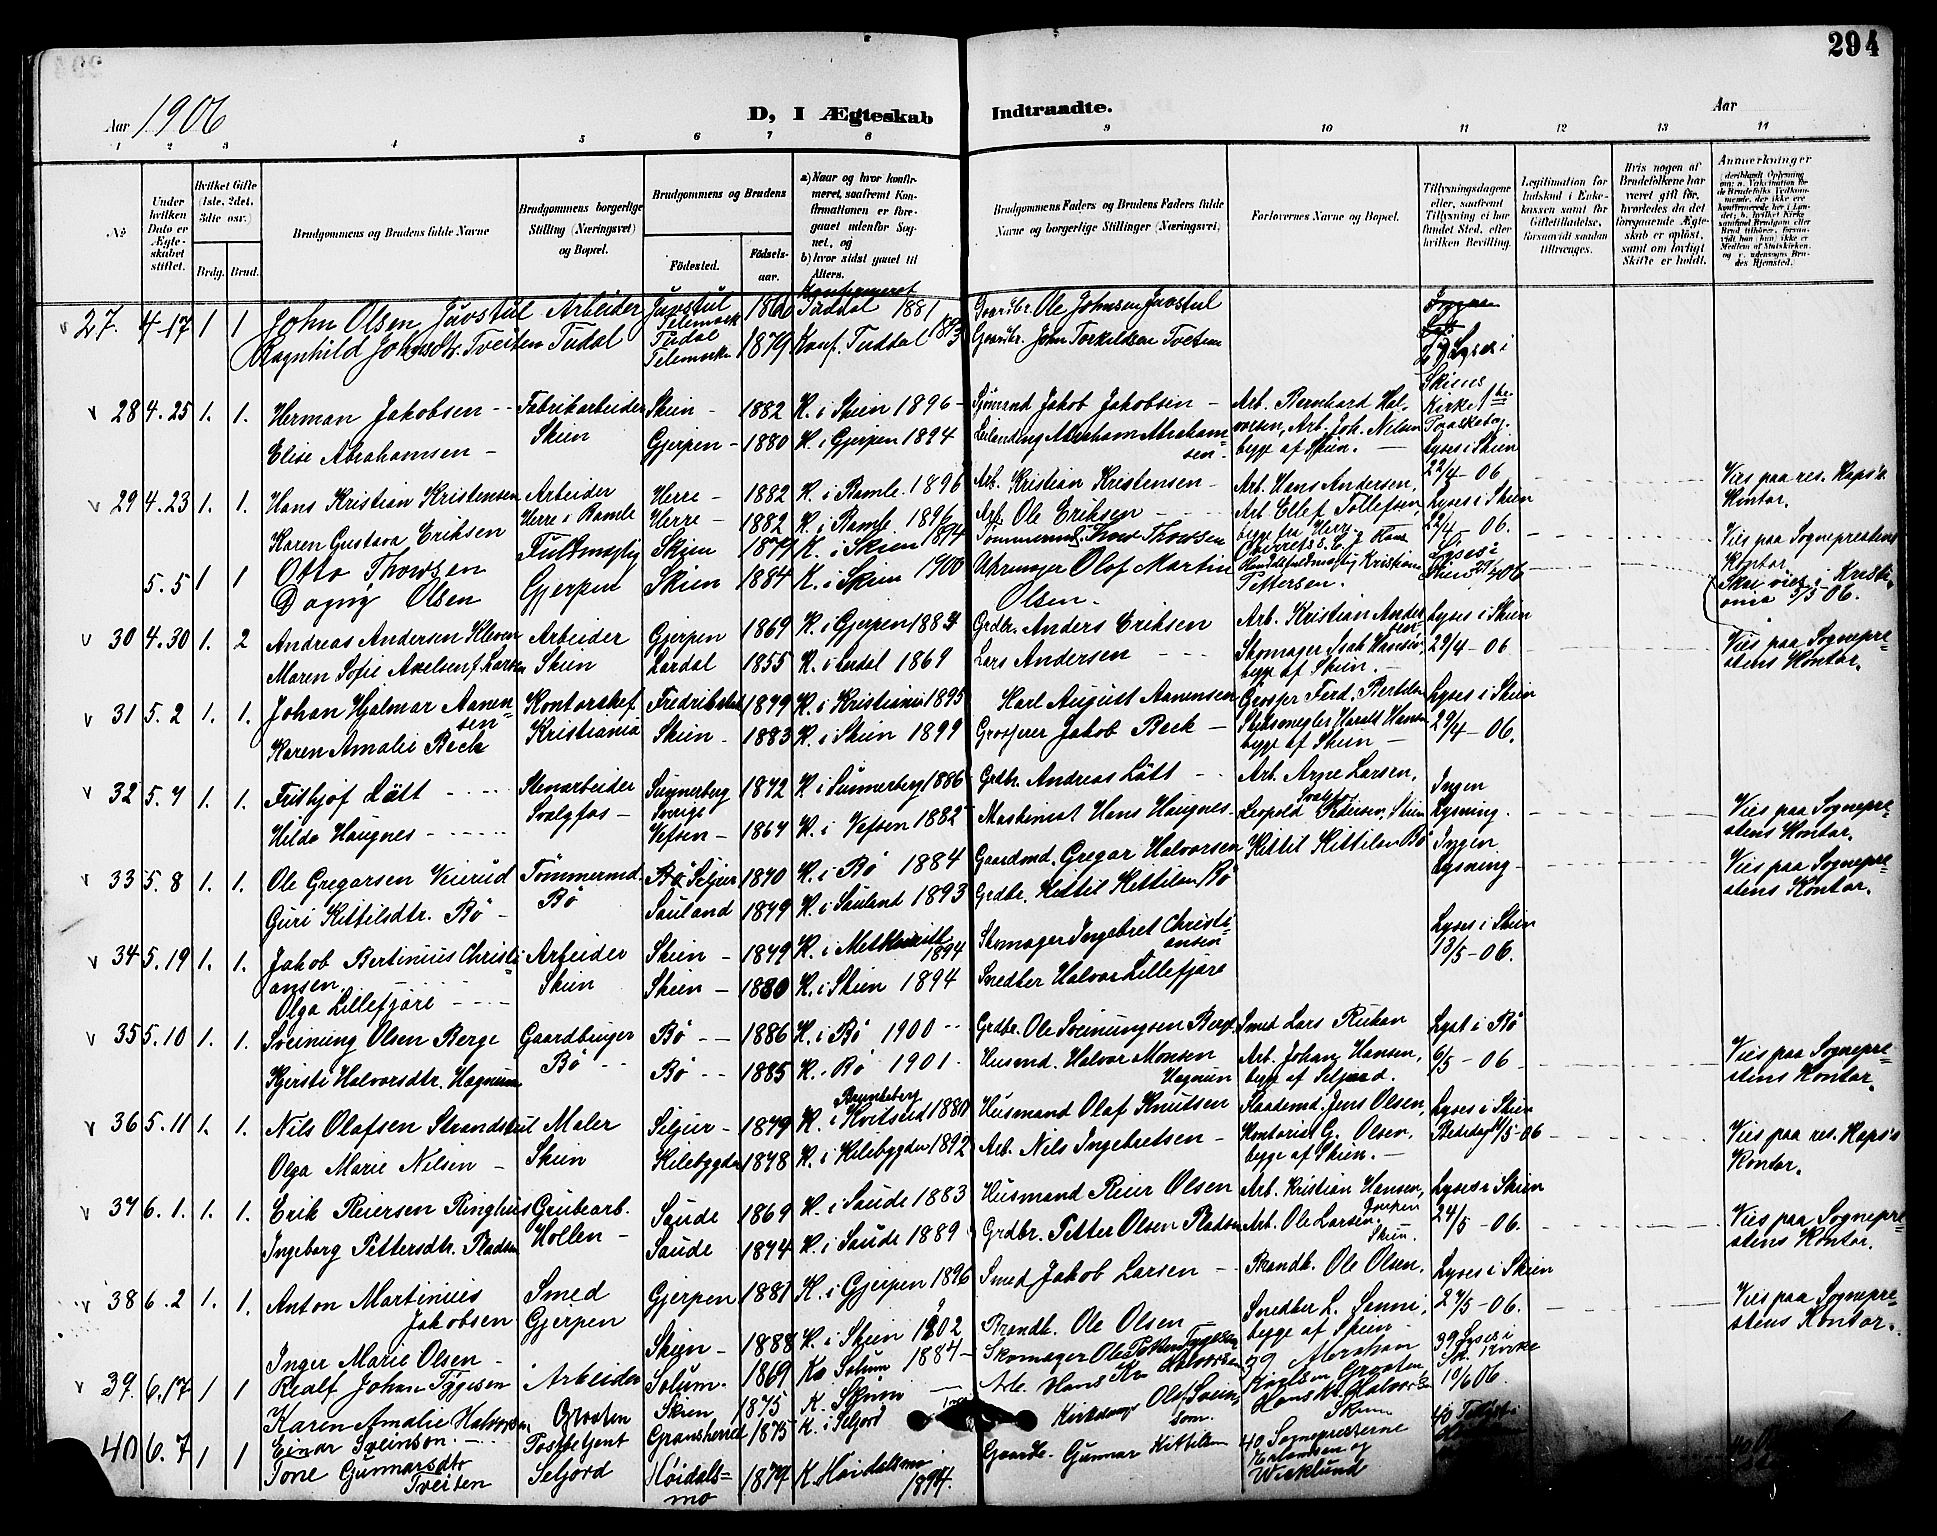 294
Aar 1906
D, I Ægteskab Indtraadte.
Aar
1 2 3 4 5 6 7 8 9 10 11 12 13 14
No
Under hvilken Dato er Ægteskabet stiftet.
Hvilket Gifte (1ste, 2det, 3die osv.)
Brdg. Brud.
Brudgommens og Brudens fulde Navne
Brudgommens borgerlige Stilling (Næringsvei) og Bopæl.
Brudgommens og Brudens
Födested.
Födselsaar.
a) Naar og hvor konfirmeret, saafremt Konfirmationen er foregaaet udenfor Sognet, og b) hvor sidst gaaet til Alters.
Brudgommens Faders og Brudens Faders fulde Navne og borgerlige Stillinger (Næringsvei)
Forlovernes Navne og Bopæl.
Tillysningsdagene eller, saafremt Tillysning ei har fundet Sted, efter hvilken Bevilling.
Legitimation for Indskud i Enkekassen samt for Giftetilladelse, forsaavidt saadan tiltrænges.
Hvis nogen af Brudefolkene har været gift för, hvorledes da det foregaaende Ægteskab er oplöst, samt om lovligt Skifte er holdt.
Anmerkninger
27. 4-17 1 1 John Olsen Juvstul Arbeider Juvstul Telemark 1866 Konfirmeret Tuddal 1881 Gaardbr. Ole Johnsen Juvstul
Ragnhild Johnsdtr. Tveiten Tudal Tudal Telemark 1879 Konf. Tuddal 1893 Gaardbr. John Torkildsen Tveten
Lyses i Skiens Kirke 1ste Paaskedag.
28 4.25 1. 1. Herman Jakobsen Fabrikarbeider Skien 1882 K. i Skien 1896 Sjömand Jakob Jakobsen Arb. Bernhard Halvorsen, Arb. Joh. Nilsen begge af Skien. Lyses i Skien 22/4-06
Elise Abrahamsen Skien Gjerpen 1880 K. i Gjerpen 1894 Leilending Abraham Abrahamsen
29 4.23 1. 1. Hans Kristian Kristensen Arbeider Herre 1882 K. i Bamle 1896 Arb. Kristian Kristensen Arb. Hans Andersen, Arb. Ellef Tollefsen, begge fra Herre Lyses i Skien 22/4-06. Vies paa res. Kap's Kontor.
Karen Gustava Eriksen Herre i Bamle Herre 1882 K. i Bamle 1896 Arb. Ole Eriksen
5.5 1 1 Otto Thowsen Fuldmægtig Skien 1879 K. i Skien 1894 Thowsen Lyses i Skien 29/4 06 Vies paa Sogneprestens Kontor. Skal vies i Kristiania 5/5 06.
Dagny Olsen Gjerpen Skien 1884 K. i Skien 1900 Uhrmager Olof Martin Olsen. Kristian Pettersen.
30 4.30 1. 2 Andreas Andersen Kleven Arbeider Gjerpen 1869 K. i Gjerpen 1884 Grdbr. Anders Eriksen Arb. Kristian Andersen Skomager Isak Hansen, begge af Skien. Lyses i Skien 29/4-06 Vies paa Sogneprestens Kontor.
Maren Sofie Axelsen f. Larsen Skien Lardal 1855 K. i Lardal 1869 Lars Andersen
31 5.2 1. 1. Johan Hjalmar Aanensen Kontorchef Fredrikstad 1879 K. i Kristiania 1895 Karl August Aanensen Grosser Ferd. Bertelsen Skibsmegler Harald Hansen begge af Skien Lyses i Skien 29/4-06.
Karen Amalie Beck Kristiania Skien 1883 K. i Skien 1899 Grosserer Jakob Beck
32 5.7 1. 1. Frithjof Lött Stenarbeider Sunnerberg Sverige 1872 K. i Sunnerberg 1886 Grdbr. Andreas Lött Arb. Arne Larsen, Svalgfos Leopold Pedersen, Skien Ingen Lysning. Vies paa Sogneprestens Kontor.
Hilda Haugnes Svalgfos Vefsen 1864 K. i Vefsen 1882 Maskinist Hans Haugnes
33 5.8 1. 1. Ole Gregarsen Veierud Tømmermd. Bø Seljur 1870 K. i Bø 1884 Gaardmd. Gregar Halvorsen Kittil Kittilsen Bø Ingen Lysning Vies paa Sogneprestens Kontor.
Guri Kittilsdtr. Bø Bø Sauland 1879 K. i Sauland 1893 Grdbr. Kittil Kittilsen Bø
34 5.19 1. 1. Jakob Bertinius Christiansen Arbeider Skien 1879 K. i Methodistk 1894 Skomager Ingebret Christiansen Lyses i Skien 13/5-06.
Olga Lillefjære Skien Skien 1880 K. i Skien 1894 Snedker Halvor Lillefjære
35 5.10 1. 1. Sveinung Olsen Berge Gaardbruger Bø 1886 K. i Bø 1900 Grdbr. Ole Sveinungsen Berge Smed Lars Rukan Arb. Johan Hansen, begge af Seljord. Lyst i Bø 6/5-06 Vies paa Sogneprestens Kontor.
Kjersti Halvorsdtr. Hagnum Bø Bø 1885 K. Bø 1901 Husmd. Halvor Monsen Hagnun
36 5.11 1. 1. Nils Olafsen Strandstul Maler Seljur 1879 K. i Kvitseid Brunkeberg Husmand Olaf Knutsen Jens Olsen, Kontorist G. Olsen, begge af Skien. Lyses i Skien Bededag 11/5-06 Vies paa res. Kap's Kontor.
Olga Marie Nilsen Skien Kilebygden 1878 K. i Kilebygden 1892 Arb. Nils Ingebretsen
37 6.1. 1. 1. Erik Reiersen Ringhus Grubearb. Saude 1869 K. i Saude 1883 Husmand Reier Olsen Arb. Kristian Hansen, Gjerpen Arb. Ole Larsen Skien. Lyses i Skien 24/5-06. Vies paa Sogneprestens Kontor.
Ingeborg Pettersdtr. Pladsen Hollen Saude 1874 K. i Saude 1889 Grdbr. Petter Olsen Pladsen
38 6.2 1. 1. Anton Martinius Jakobsen Smed Gjerpen Gjerpen 1881 K. i Gjerpen 1896 Smed Jakob Larsen Brandk. Ole Olsen, Snedker L. Sanni, begge af Skien. Lyses i Skien 27/5-06. Vies paa Sogneprestens Kontor.
Inger Marie Olsen Skien 1888 K. i Skien 1902 Brandk. Ole Olsen
39. 6.17 1 1 Realf Johan Tygesen Arbeider Solum 1869 K. Solum 1884 Skomager Ole Tygesen 39 Abraham Karlsen Graaten Hans Kr. Halvorsen Skien 39 Lyses i Sk. Kirke 10/6 06.
Karen Amalie Halvorsen Graaten Skien 1875 K. Skien Arb. Hans Kr. Halvorsen
40 6.7 1 1 Einar Sveinson Postbetjent Gransherred 1875 K. i Seljord Kirkesanger Olaf Sveinsson. 40. Sognepresterne Erlandsen og Wicklund
Tone Gunnarsdtr Tveiten Seljord Høidalsmo 1874 K. Høidalsmo 1894. Gaardbr. Gunnar Kittilsen